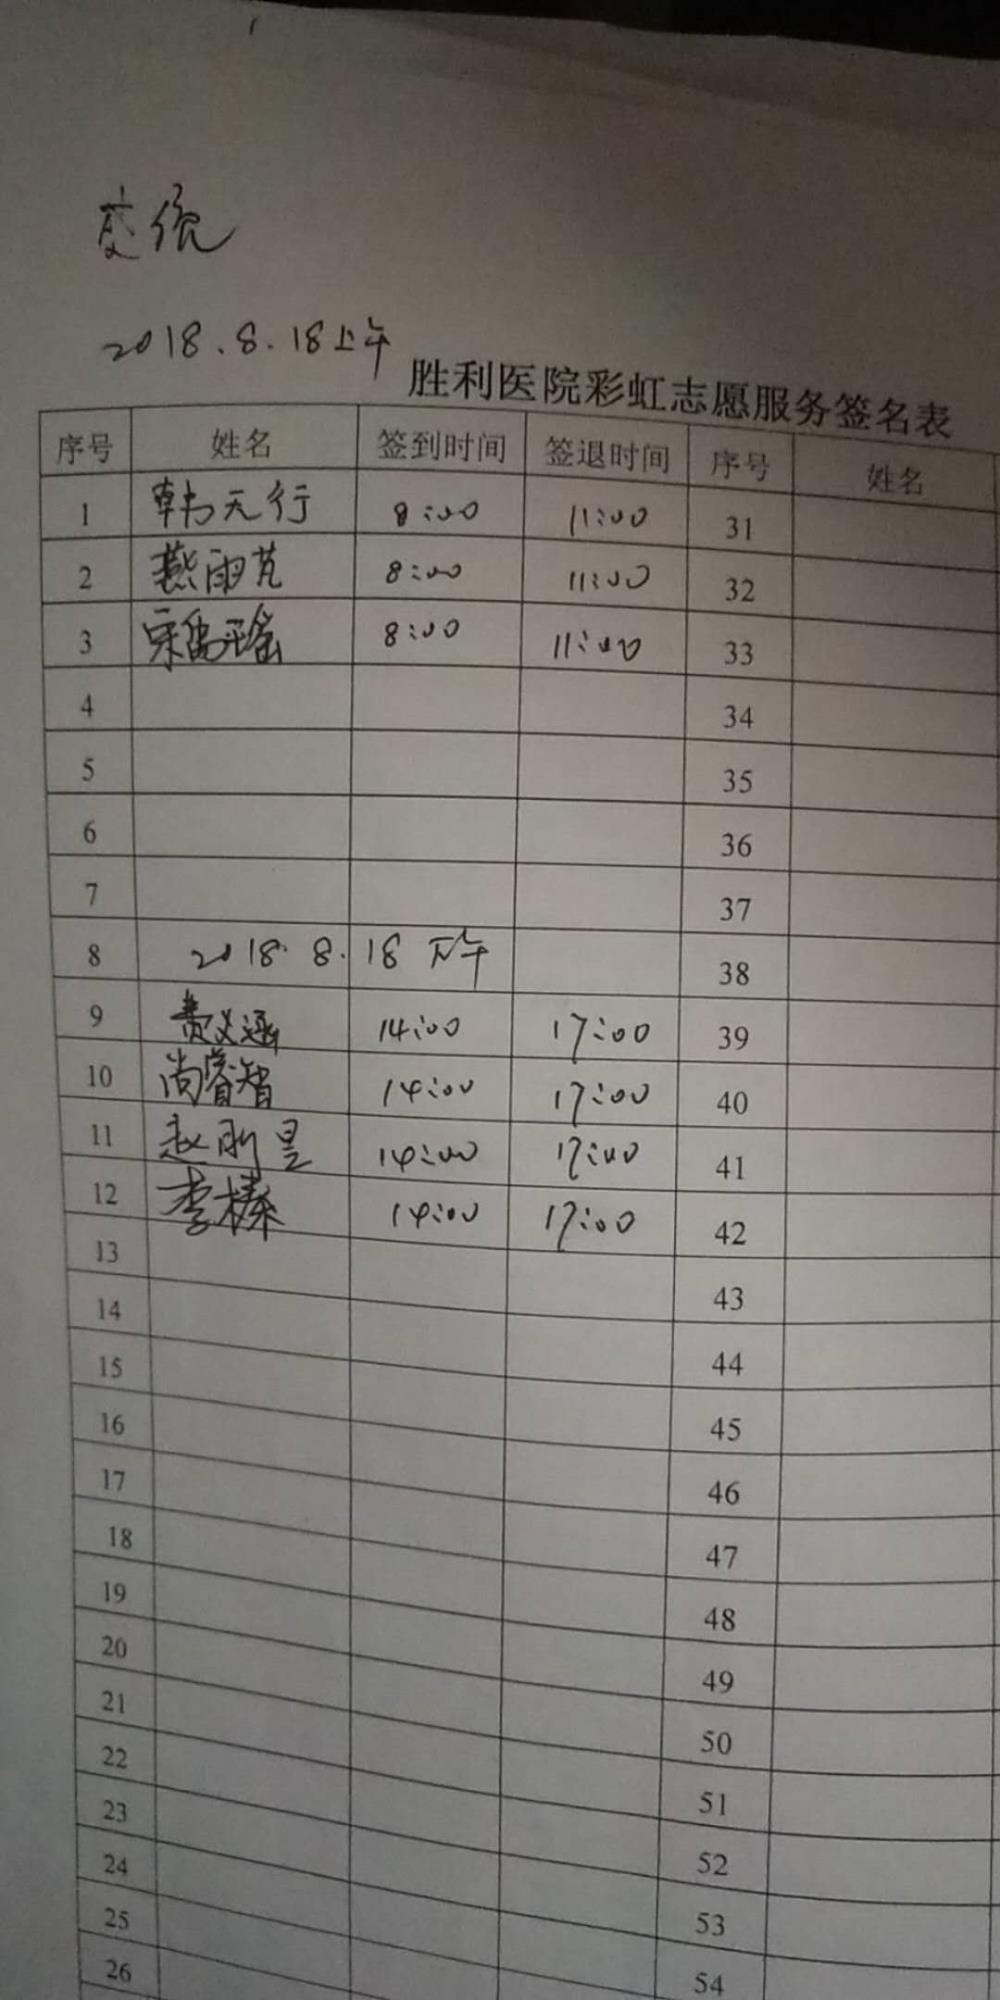 2018.8.18上午
胜利医院彩虹志愿服务签名表
序号 姓名 签到时间 签退时间 序号 姓名
1 韩天行 8:00 11:00 31
2 燕雨芃 8:00 11:00 32
3 宋禹瑶 8:00 11:00 33
4 34
5 35
6 36
7 37
8 2018.8.18 下午 38
9 14:00 17:00 39
10 尚睿智 14:00 17:00 40
11 赵刚昱 14:00 17:00 41
12 李榛 14:00 17:00 42
13 43
14 44
15 45
16 46
17 47
18 48
19 49
20 50
21 51
22 52
23 53
24 54
25
26